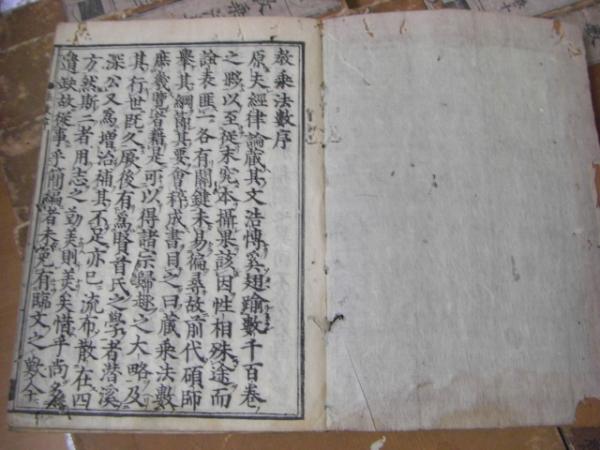 教乗法數序
原夫經律論藏其文浩博奚翅踰數千百卷
之夥以至從末究本攝果該因性相殊途而
詮表匪一各有關鍵未易徧尋故前代碩師
舉其綱領其要會稡成書目之曰藏乘法數
庶幾覽者藉是可以得諸宗歸趣之大略及
其行世旣久厥後有爲賢首氏之學者潜溪
深公又爲增治補其不足亦已流布散在四
方然斯二者用志之勤美則美矣惜乎尚多
遺缺故從事乎簡編者未免有臨文之歎今